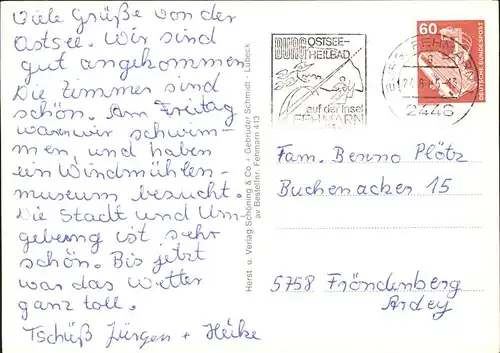 Viele Grüße von der
Ostsee. Wir sind
gut angekommen
Die Zimmer sind
schön. Am Freitag
waren wir schwim-
men, und haben
ein Windmühlen-
museum besucht.
Die Stadt und Um-
gebung ist sehr
schön. Bis jetzt
war das Wetter
ganz toll.
Tschüß Jürgen + Heike
Herst. u. Verlag Schöning & Co + Gebrüder Schmidt - Lübeck
av Bestellnr. Fehmarn 413
BURG OSTSEE-
HEILBAD
auf der Insel
FEHMARN
60
DEUTSCHE BUNDESPOST
2448
Fam. Benno Plötz
Buchenacker 15
5758 Fröndenberg
Ardey